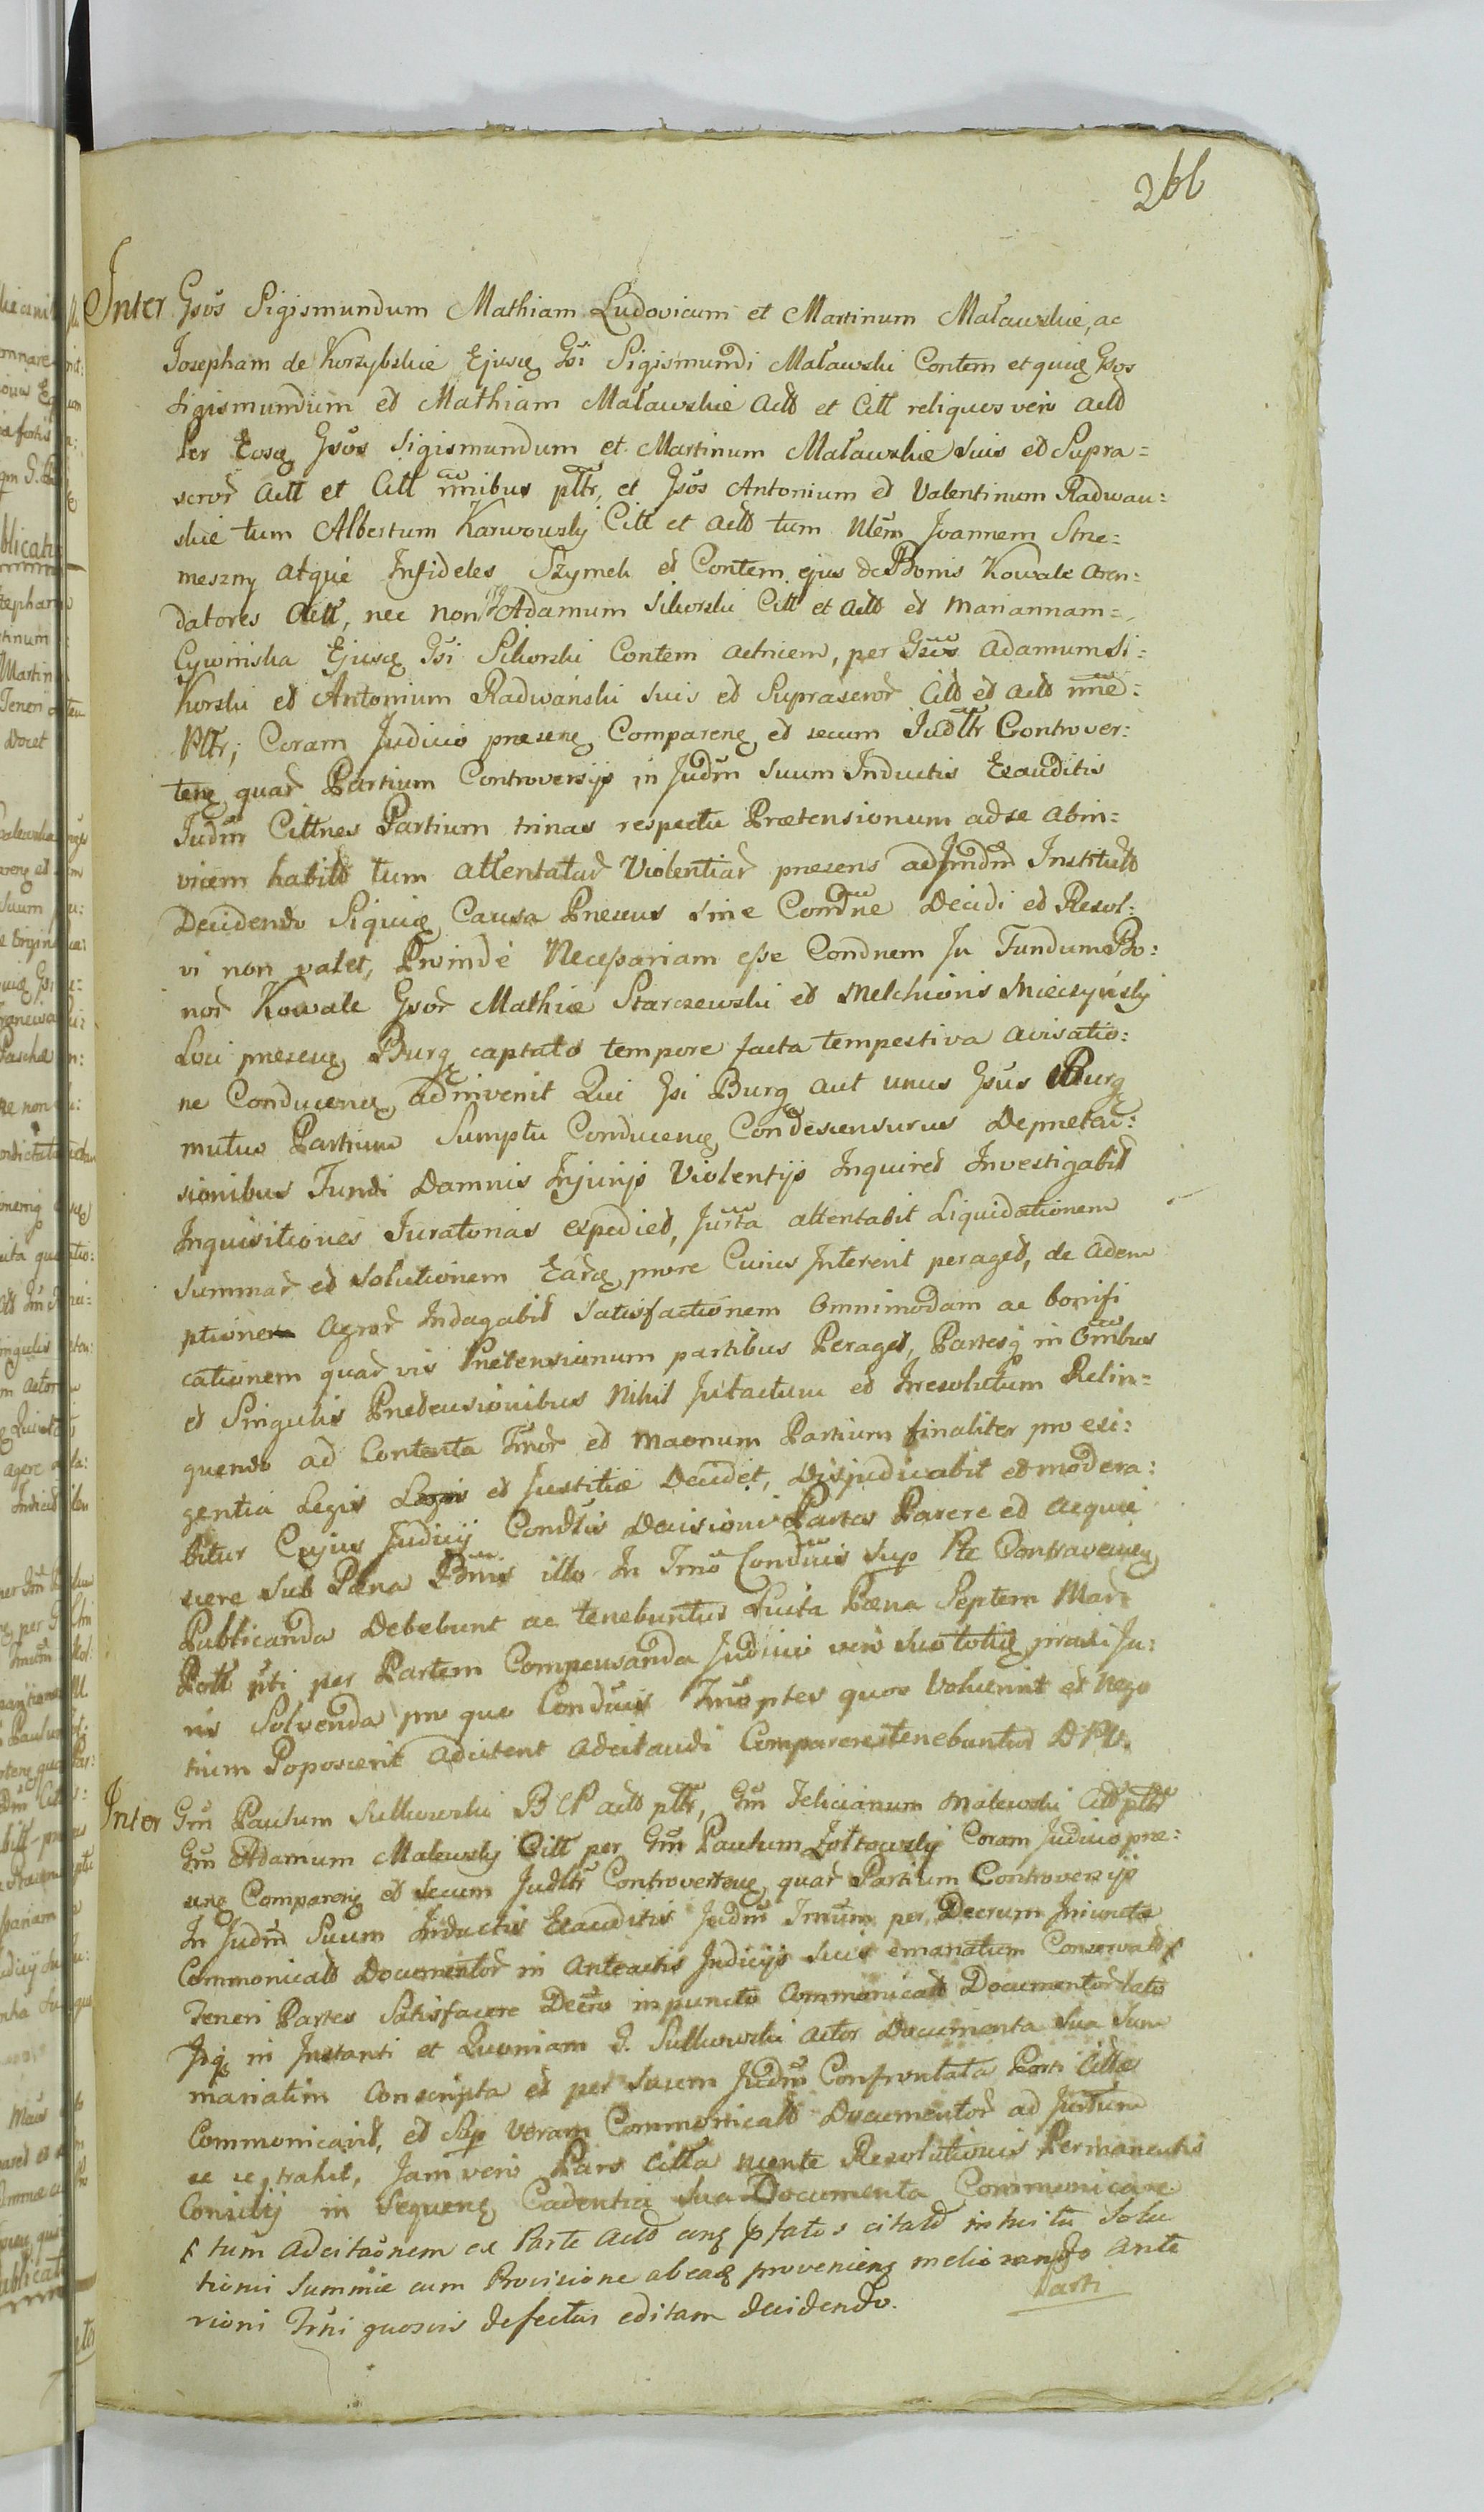 266
Inter Gsos Sigismundum Mathiam Ludovicum et Martinum Małauskie, ac
Josepham de Korzybskie Ejusq Gsi Sigismundi Małauski Contem et quiq Gsos
Sigismundum et Mathiam Małauskie Actt et Citt reliquos vero Actt
Per Eosq Gsos Sigismundum et Martinum Małauskie suis et Supra=
scror Actt et Citt nnibus pltr, et Gsos Antonium et Valentinum Radwan:
skie tum Albertum Karwousky Citt et Actt tum Nlem Joannem Strze=
meszny atque Infideles Szymek et Contem ejus de Bonis Kowale Aren:
datores Actt, nec non Adamum Sikorski Citt et Actt et Mariannam=
Cywińska Ejusq Gsi Sikorski Contem Actricem, per Gsos Adamum Si:
korski et Antonium Radwański suis et Suprascror Citt et Actt nne:
Pltr; Coram Judicio presenq Comparenq et secum Judltr Controver:
tenq quar Partium Controversijs in Judm Suum Inductis Exauditis
Judm Cittnes Partium trinas respectu Prætensionum ad se abin=
vicem habitt tum attentatar Violentiar presens ad Judm Institutt
Decidendo Siquiq Causa Presens sine Condne Decidi et Resol:
vi non valet, Proinde Necessariam esse Condnem In Fundum Bo:
nor Kowale Gsor Mathiæ Starczewski et Melchioris Mieczyńsky
Loci presenq Burg captato tempore facta tempestiva avisatio:
ne Conducenq adinvenit Qui Gsi Burg aut unus Gsus Burg
mutuo Partium Sumptu Conducenq Condescensurus De preten:
sionibus Fundi Damnis Injurijs Violentijs Inquiret Investigabit
Inquisitiones Juratorias expediet, Jurta attentabit Liquidationem
Summar et Solutionem Earq prore Cuius Intererit peraget, de adem
ptione Agror Indagabit Satisfactionem Omnimodam ac bonifi
cationem quar vis Pretensionum partibus Peraget, Partesq in Omibus
et Singulis Pretensionibus Nihil Intactum et Irresolutum Relin=
quendo ad Contenta Tmor et Maonum Partium finaliter pro exi:
gentia Legis et Justitiæ Decidet, Disjudicabit et modera:
bitur Cujus Judicij Condtis Decisioni Partes Parere et acquie
scere sub Pæna Bnnis illo In Tmo Condnis Sup Pte Contravenienq
Publicanda Debebunt ac tenebuntur Luita Pæna Septem Mar
Poll pti per Partem Compensanda Judicio vero Suo totiq pradi Ju:
ris Solvenda pro quo Condnis Tmo ptes quos Voluerint et Nego
tium Poposcerit adcitent adcitandi Comparere tenebuntur DPV.
Inter Gm Paulum Sulkowski BCP actt pltr, Gm Felicianum Malewski Citt pltr
Gm Adamum Malewsky Citt per Gm Paulum Zołtowsky Coram Judicio præ:
senq Comparenq et Secum Judltr Controvertenq quar Partium Controversijs
In Judm Suum Inductis Exauditis Judm Tmum per Decrum Iniuncta
Commonicatt Documentor in Anteactis Judicijs Suis emanatum Conservatt
Teneri Partes Satisfacere Decro in puncto Commonicatt Documentor lato
Idq in Instanti et Quoniam G. Sulkowski Actor Documenta Sua Sum
mariatim Conscripta et per Suum Judm Confrontata Parti Cittæ
Commonicavit, et Sup Veram Commonicatt Documentor ad Jurtum
se se trahit, Jam vero Pars Citta mente Resolutionis Permanentis
Consilij in Sequenq Cadentia Sua Documenta Communicare
tum adcitaonem ex Parte Actt cunq ptatos citatt intuitu Solu
tionis Summæ cum Provisione ab eaq provenienq meliorando Ante
rioni Tmi quosvis defectus editam decidendo.
Parti